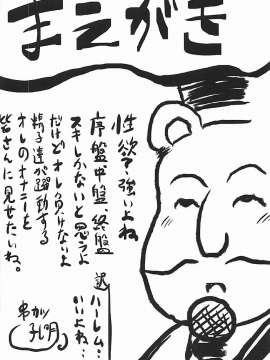 まえがき
性欲?強いよね
序盤中盤終盤
スキがないと思うよ
だけどオレ負けないよ
精子達が躍動する
オレのオナニーを
皆さんに見せたいね。
逆ハーレム…
いいよね…
串カツ
孔明